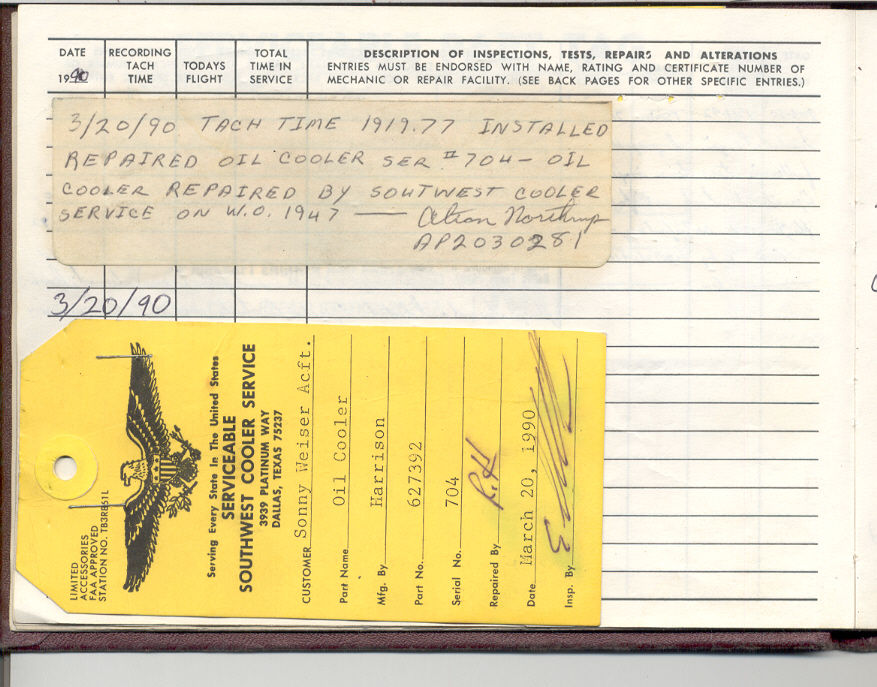 DATE
1990
RECORDING
TACH
TIME
TODAYS
FLIGHT
TOTAL
TIME IN
SERVICE
DESCRIPTION OF INSPECTIONS, TESTS, REPAIRS AND ALTERATIONS
ENTRIES MUST BE ENDORSED WITH NAME, RATING AND CERTIFICATE NUMBER OF
MECHANIC OR REPAIR FACILITY. (SEE BACK PAGES FOR OTHER SPECIFIC ENTRIES.)
3/20/90 TACH TIME 1919.77 INSTALLED
REPAIRED OIL COOLER SER # 704 — OIL
COOLER REPAIRED BY SOUTWEST COOLER
SERVICE ON W.O. 1947 —
Northrup
AP2030281
3/20/90
LIMITED
ACCESSORIES
FAA APPROVED
STATION NO. TB3R861L
Serving Every State In The United States
SERVICEABLE
SOUTHWEST COOLER SERVICE
3939 PLATINUM WAY
DALLAS, TEXAS 75237
CUSTOMER Sonny Weiser Acft.
Part Name Oil Cooler
Mfg. By Harrison
Part No. 627392
Serial No. 704
Repaired By R.H
Date March 20, 1990
Insp. By